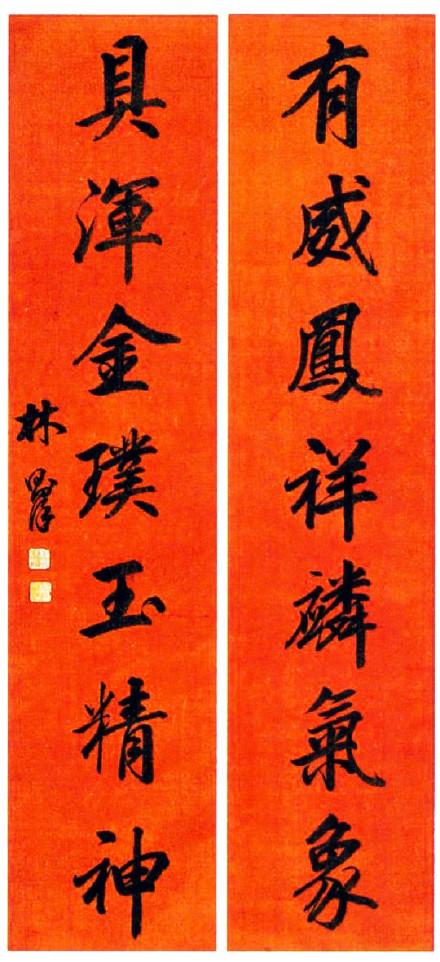 有威鳳祥麟氣象
具渾金璞玉精神
林